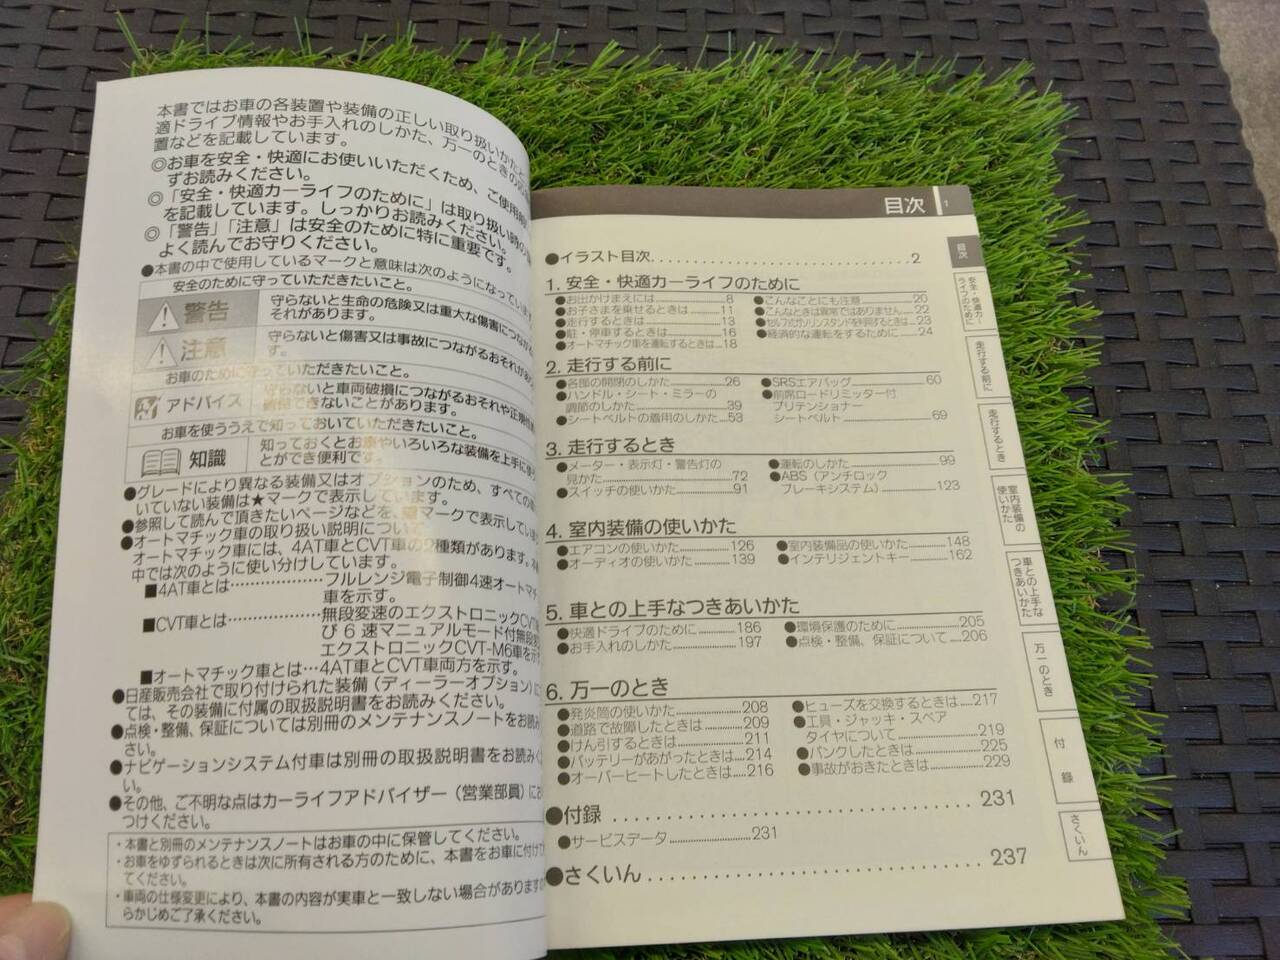 本書ではお車の各装置や装備の正しい取り扱いかたと
適ドライブ情報やお手入れのしかた、万一のときの
置などを記載しています。
◎お車を安全・快適にお使いいただくため、ご使用前
ずお読みください。
◎「安全・快適カーライフのために」は取り扱い時の
を記載しています。しっかりお読みください。
◎「警告」「注意」は安全のために特に重要です。
よく読んでお守りください。
●本書の中で使用しているマークと意味は次のようになってい
安全のために守っていただきたいこと。
警告
守らないと生命の危険又は重大な傷害につながる
それがあります。
注意
守らないと傷害又は事故につながるおそれがあ
す。
お車のために守っていただきたいこと。
アドバイス
守らないと車両破損につながるおそれや正規
できないことがあります。
お車を使ううえで知っておいていただきたいこと。
知識
知っておくとお車やいろいろな装備を上手に
とができ便利です。
●グレードにより異なる装備又はオプションのため、すべての
いていない装備は★マークで表示しています。
●参照して読んで頂きたいページなどを、マークで表示してい
●オートマチック車の取り扱い説明について
オートマチック車には、4AT車とCVT車の2種類があります。
中では次のように使い分けしています。
■4AT車とは………………フルレンジ電子制御4速オートマチ
車を示す。
■CVT車とは………………無段変速のエクストロニックCVT
び6速マニュアルモード付無段変
エクストロニックCVT-M6車を示
■オートマチック車とは…4AT車とCVT車両方を示す。
●日産販売会社で取り付けられた装備（ディーラーオプション）に
ては、その装備に付属の取扱説明書をお読みください。
●点検・整備、保証については別冊のメンテナンスノートをお読み
さい。
●ナビゲーションシステム付車は別冊の取扱説明書をお読みく
い。
●その他、ご不明な点はカーライフアドバイザー（営業部員）に
つけください。
・本書と別冊のメンテナンスノートはお車の中に保管してください。
・お車をゆずられるときは次に所有される方のために、本書をお車に付け
てください。
・車両の仕様変更により、本書の内容が実車と一致しない場合があります
らかじめご了承ください。
目次 1
●イラスト目次..........2
1. 安全・快適カーライフのために
●お出かけまえには..........8
●お子さまを乗せるときは..........11
●走行するときは..........13
●駐・停車するときは..........16
●オートマチック車を運転するときは...18
●こんなことにも注意..........20
●こんなときは異常ではありません..........22
●セルフ式ガソリンスタンドを利用するときは...23
●経済的な運転をするために..........24
2. 走行する前に
●各部の開閉のしかた..........26
●ハンドル・シート・ミラーの
調節のしかた..........39
●シートベルトの着用のしかた...53
●SRSエアバッグ..........60
●前席ロードリミッター付
プリテンショナー
シートベルト..........69
3. 走行するとき
●メーター・表示灯・警告灯の
見かた..........72
●スイッチの使いかた..........91
●運転のしかた..........99
●ABS（アンチロック
ブレーキシステム）..........123
4. 室内装備の使いかた
●エアコンの使いかた..........126
●オーディオの使いかた..........139
●室内装備品の使いかた..........148
●インテリジェントキー..........162
5. 車との上手なつきあいかた
●快適ドライブのために..........186
●お手入れのしかた..........197
●環境保護のために..........205
●点検・整備、保証について.....206
6. 万一のとき
●発炎筒の使いかた..........208
●道路で故障したときは..........209
●けん引するときは..........211
●バッテリーがあがったときは....214
●オーバーヒートしたときは.....216
●ヒューズを交換するときは....217
●工具・ジャッキ・スペア
タイヤについて..........219
●パンクしたときは..........225
●事故がおきたときは..........229
●付録..........231
●サービスデータ..........231
●さくいん..........237
目次
安全・快適カー
ライフのために
走行する前に
走行するとき
室内装備の
使いかた
車との上手な
つきあいかた
万一のとき
付録
さくいん